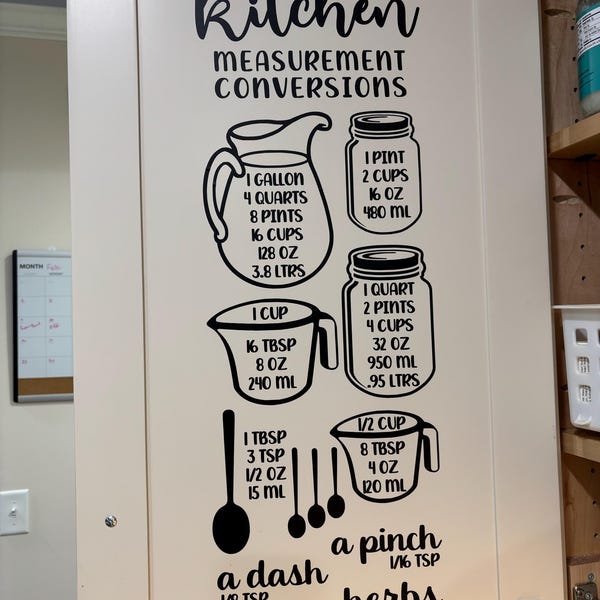 kitchen
MEASUREMENT
CONVERSIONS
1 GALLON
4 QUARTS
8 PINTS
16 CUPS
128 OZ
3.8 LTRS
1 PINT
2 CUPS
16 OZ
480 ML
1 QUART
2 PINTS
4 CUPS
32 OZ
950 ML
.95 LTRS
1 CUP
16 TBSP
8 OZ
240 ML
1 TBSP
3 TSP
1/2 OZ
15 ML
1/2 CUP
8 TBSP
4 OZ
120 ML
a pinch
1/16 TSP
a dash
1/8 TSP
herbs
MONTH Feb